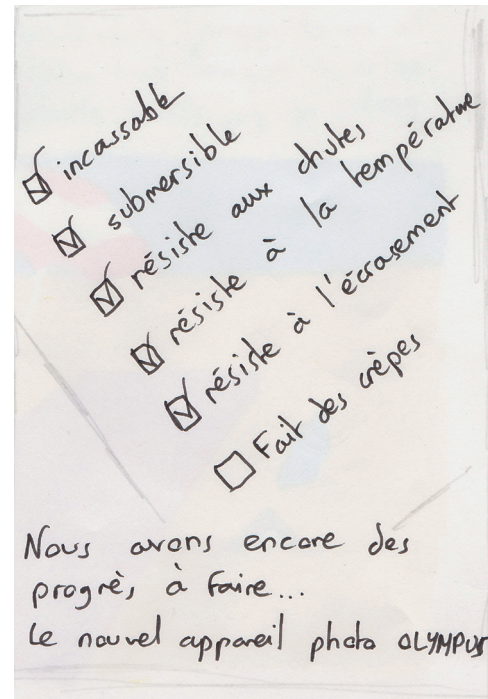 incassable
submersible
résiste aux chutes
résiste à la température
résiste à l'écrasement
Fait des crèpes
Nous avons encore des
progrès à faire...
Le nouvel appareil photo OLYMPUS